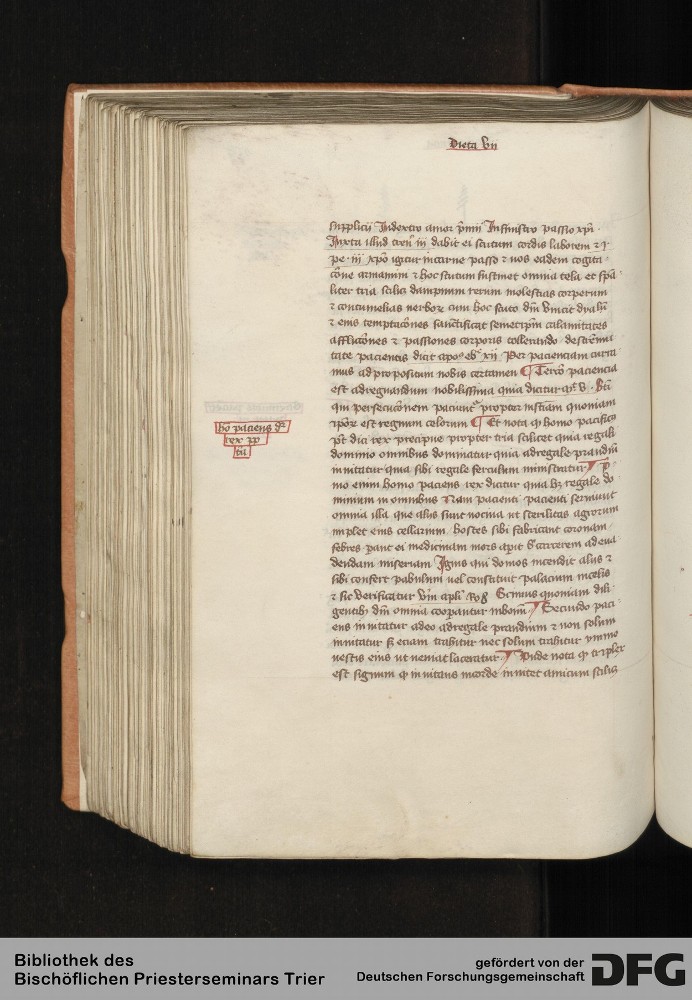 Dieta vii
supplicii Indextro amor p̄mii Insinistro passio xp̄i ·
Iuxta illud tren̄ iii dabit ei scutum cordis laborem
pe · iii xp̄o igitur incarne passo ⁊ uos eadem cogita
cōne armamini ⁊ hoc scutum sustinet omnia tela et sp̄a
liter tria scilicꝫ dampnum rerum molestias corporum
⁊ contumelias uerborꝫ cum hoc scuto dn̄s vincit dyab
⁊ eius temptacōnes sanctificat semetip̄m calamitates
afflictōnes ⁊ passiones corporis tollerando
tate pacientis dicit apos eb xii Per pacienciam curra
mus ad propositum nobis certamen ¶ Tercō paciencia
est adregnandum nobilissima quia dicitur v · Bti
qui persecucōnem paciunt᷑ propter iusticiam quoniam
ip̄oꝝ est regnum celorum ¶ Et nota ꝙ homo pacificꝰ
pt̄ dici rex precipue propter tria scilicet quia regali
dominio omnibus dominatur quia adregale prandiū
inuitatur quia sibi regale ferculum ministratur ¶ P
mo enim homo paciens rex dicitur quia hꝫ regale do
minium in omnibus Nam pacienti pacienti seruiunt
omnia illa que aliis sunt nociua ut sterilitas agrorum
implet eius cellarium · hostes sibi fabricant coronam ·
febres parāt ei medicinam mors apit carcerem ad eua
dendam miseriam Ignis qui domos incendit aliis ⁊
sibi confert pabulum uel construit palacium incelis
⁊ sic verificatur v̄bm apli Ro 8 Scimus quoniam dili
gentibꝫ dm̄ omnia cooperantur inbonū ¶ Secundo paci
ens inuitatur adeo adregale prandium ⁊ non solum
inuitatur s etiam trahitur nec solum trahitur ymmo
uestis eius ut ueniat laceratur ¶ Unde nota ꝙ triplex
est signum ꝙ inuitans incorde inuitet amicum scilicꝫ
ho paciens dr̄
rex pp
tria
Bibliothek des
Bischöflichen Priesterseminars Trier
gefördert von der
Deutschen Forschungsgemeinschaft
DFG